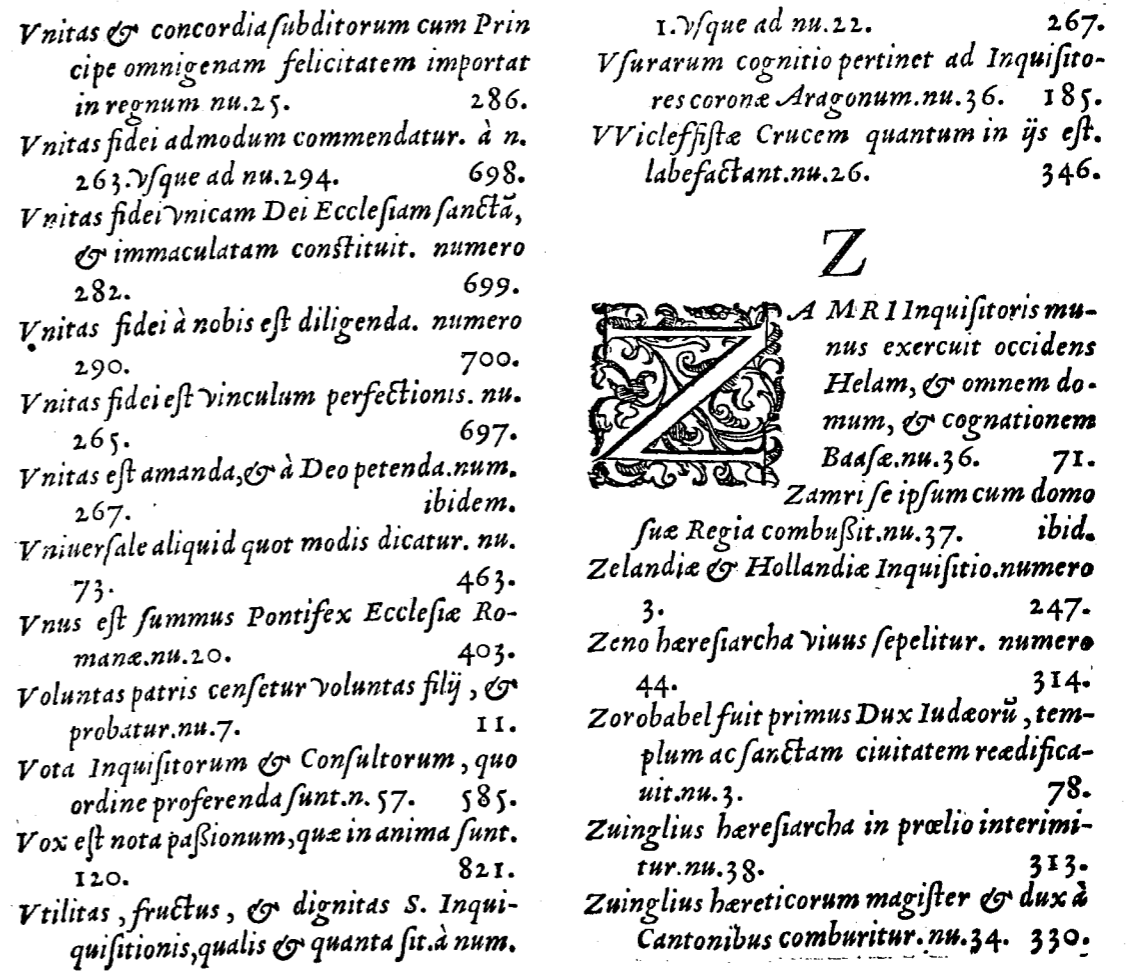 Vnitas & concordia ſubditorum cum Prin
cipe omnigenam felicitatem importat
in regnum nu.25. 286.
Vnitas fidei admodum commendatur. à n.
263.vſque ad nu.294. 698.
Vnitas fidei vnicam Dei Eccleſiam ſanctã,
& immaculatam conſtituit. numero
282. 699.
Vnitas fidei à nobis eſt diligenda. numero
290. 700.
Vnitas fidei eſt vinculum perfectionis. nu.
265. 697.
Vnitas eſt amanda,& à Deo petenda.num.
267. ibidem.
Vniuerſale aliquid quot modis dicatur. nu.
73. 463.
Vnus eſt ſummus Pontifex Eccleſiæ Ro-
manæ.nu.20. 403.
Voluntas patris cenſetur voluntas filij , &
probatur.nu.7. 11.
Vota Inquiſitorum & Conſultorum , quo
ordine proferenda ſunt.n. 57. 585.
Vox eſt nota paßionum,quæ in anima ſunt.
120. 821.
Vtilitas , fructus , & dignitas S. Inqui-
quiſitionis,qualis & quanta ſit.à num.
1.vſque ad nu.22. 267.
Vſurarum cognitio pertinet ad Inquiſito-
res coronæ Aragonum.nu.36. 185.
VVicleffiſtæ Crucem quantum in ijs eſt.
labefactant.nu.26. 346.
Z
ZAMRI Inquiſitoris mu-
nus exercuit occidens
Helam, & omnem do-
mum, & cognationem
Baaſæ.nu.36. 71.
Zamri ſe ipſum cum domo
ſuæ Regia combußit.nu.37. ibid.
Zelandiæ & Hollandiæ Inquiſitio.numero
3. 247.
Zeno hæreſiarcha viuus ſepelitur. numero
44. 314.
Zorobabel fuit primus Dux Iudæorũ , tem-
plum ac ſanctam ciuitatem reædifica-
uit.nu.3. 78.
Zuinglius hæreſiarcha in prœlio interimi-
tur.nu.38. 313.
Zuinglius hæreticorum magiſter & dux à
Cantonibus comburitur.nu.34. 330.